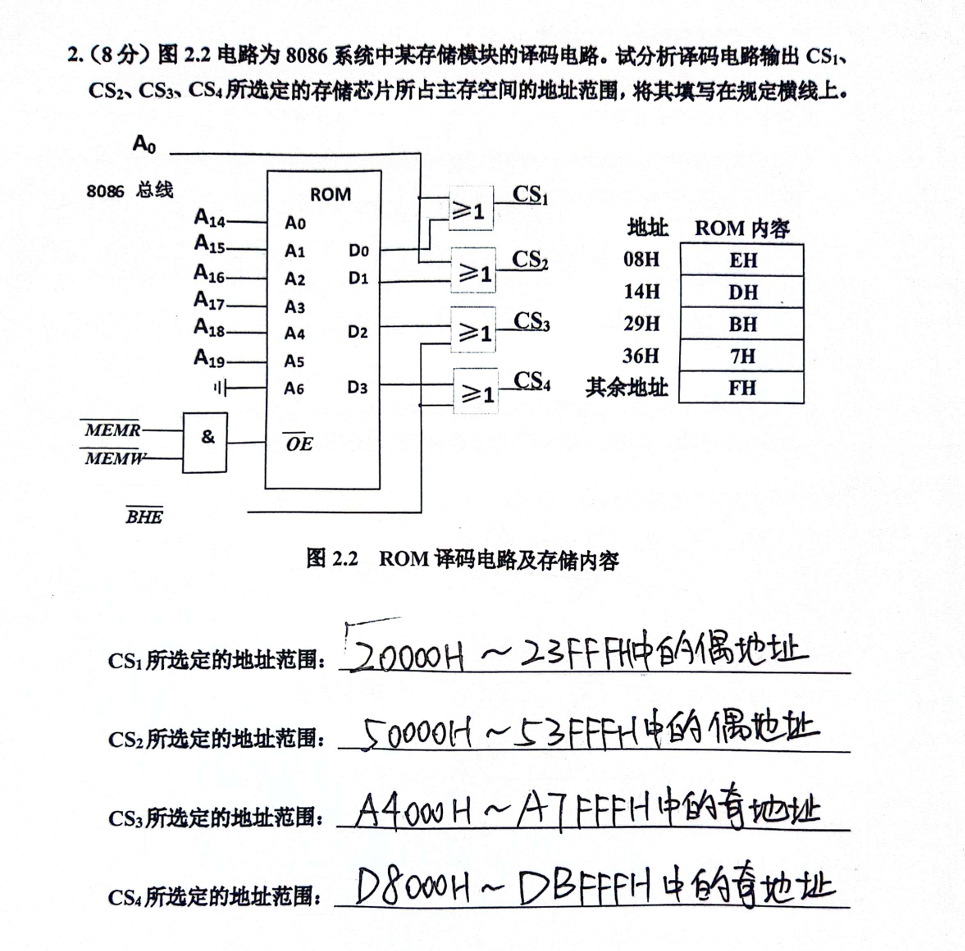 2.（8 分）图 2.2 电路为 8086 系统中某存储模块的译码电路。试分析译码电路输出 CS₁、
CS₂、CS₃、CS₄ 所选定的存储芯片所占主存空间的地址范围，将其填写在规定横线上。
A₀
8086 总线
ROM
A14 A0
A15 A1 D0
A16 A2 D1
A17 A3
A18 A4 D2
A19 A5
A6 D3
MEMR
MEMW
&
OE
BHE
≥1 CS₁
≥1 CS₂
≥1 CS₃
≥1 CS₄
地址 ROM 内容
08H EH
14H DH
29H BH
36H 7H
其余地址 FH
图 2.2 ROM 译码电路及存储内容
CS₁ 所选定的地址范围： 20000H ～ 23FFFH中的偶地址
CS₂ 所选定的地址范围： 50000H ～ 53FFFH中的偶地址
CS₃ 所选定的地址范围： A4000H ～ A7FFFH中的奇地址
CS₄ 所选定的地址范围： D8000H ～ DBFFFH中的奇地址